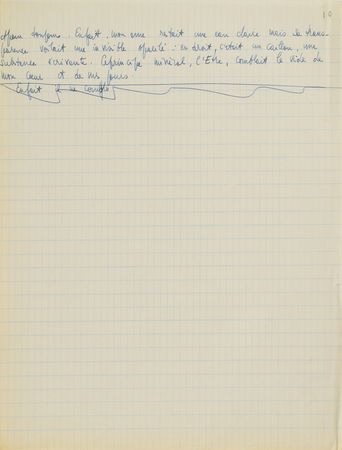 10
Enfant, mon âme restait une eau claire mais sa trans-
parence voilait une invisible opacité : en droit, c'était un caillou, une
substance écrivante. Ce principe minéral, l'Être, comblait le vide de
mon cœur et de mes jours.
Enfant je me